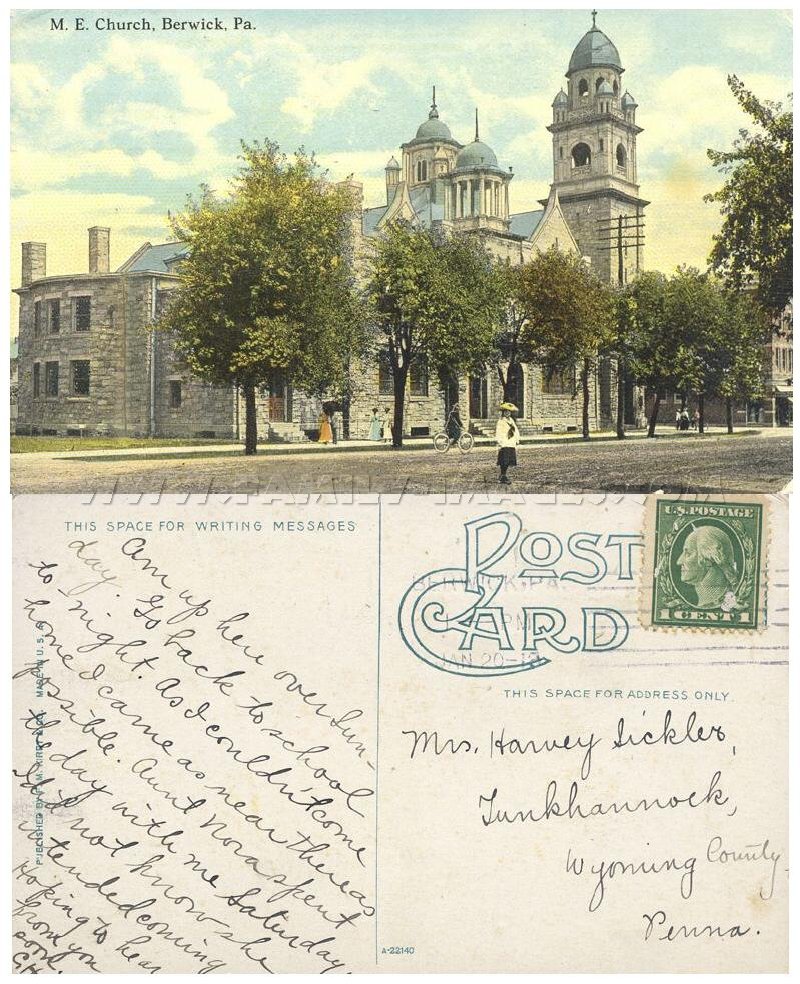 M. E. Church, Berwick, Pa.
WWW.FAMILY-IMAGES.COM
THIS SPACE FOR WRITING MESSAGES
Am up here over Sun-
day. Go back to school
to night. As I couldn't come
home I came as near there as
possible. Aunt Nora spent
the day with me Saturday.
Did not know she
intended coming
Hoping to hear
from you
soon.
MADE IN U.S.A.
PUBLISHED BY
POST CARD
BERWICK, PA.
PM
JAN 20
U.S. POSTAGE
1 CENT 1
THIS SPACE FOR ADDRESS ONLY.
Mrs. Harvey Sickler,
Tunkhannock,
Wyoming County
Penna.
A-22140